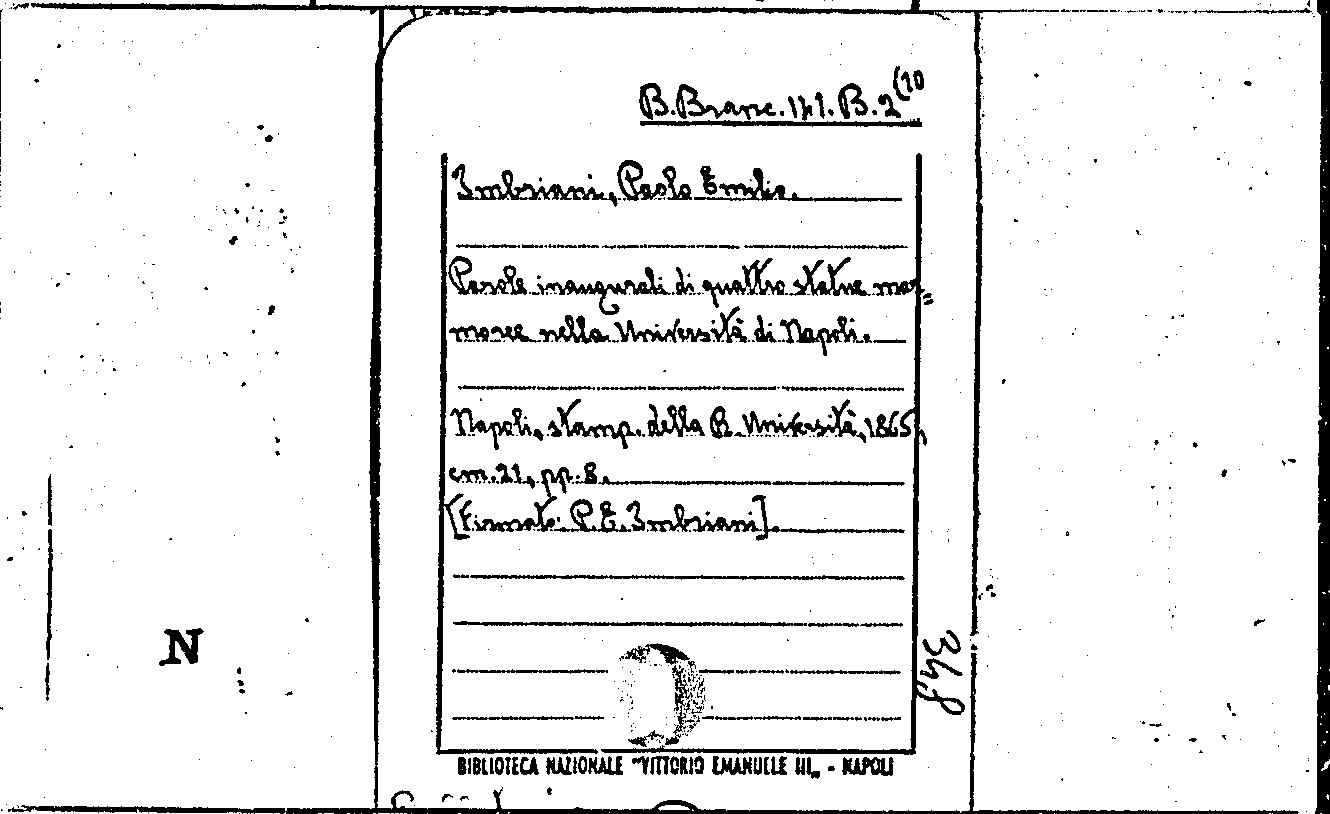 B. Branc. 141. B. 2 (10
Imbriani, Paolo Emilio.
Parole inaugurali di quattro statue mar„
moree nella Università di Napoli.
Napoli, stamp. della R. Università, 1865,
cm. 21, pp. 8.
[Firmato: P. E. Imbriani].
348
N
BIBLIOTECA NAZIONALE "VITTORIO EMANUELE III„ - NAPOLI